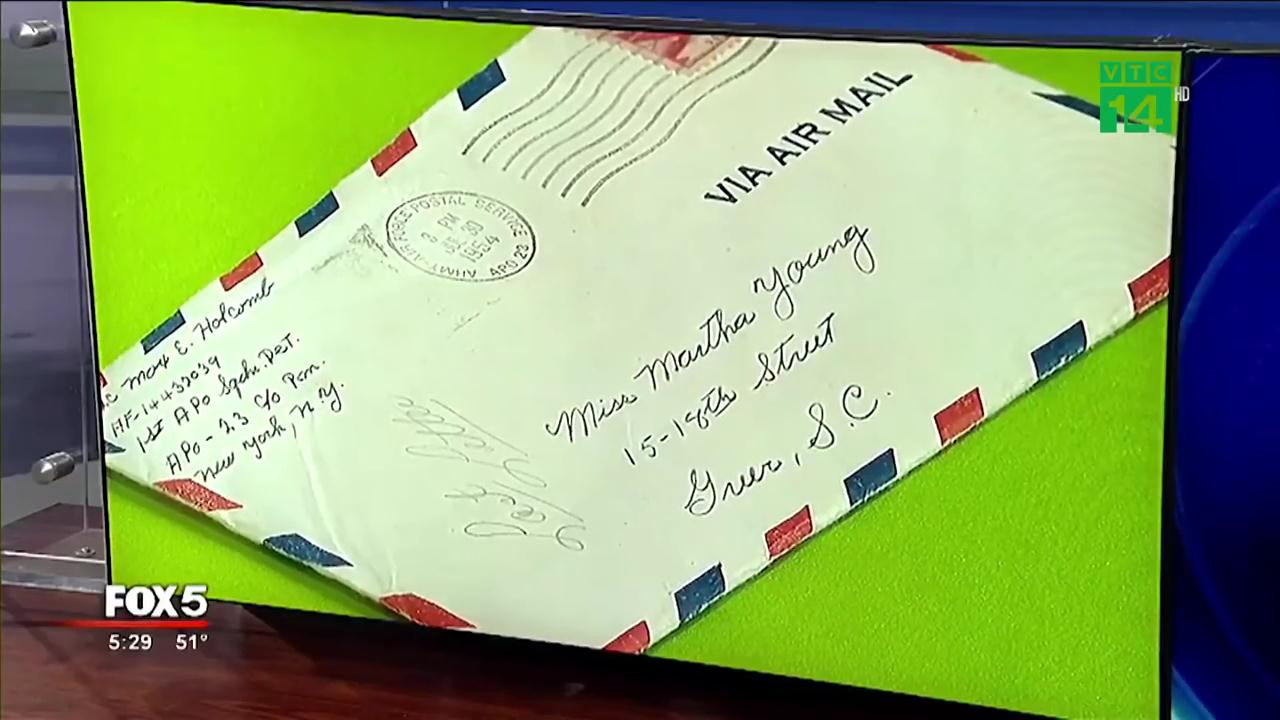 VTC
14 HD
VIA AIR MAIL
ARMY-AIR FORCE POSTAL SERVICE
PM
30
1954
APO 23
Mark E. Holcomb
1st APO Sqdn. Det.
APO - 23 c/o P.m.
New York, N.Y.
Miss Martha Young
15-18th Street
Greer, S.C.
FOX 5
5:29 51°